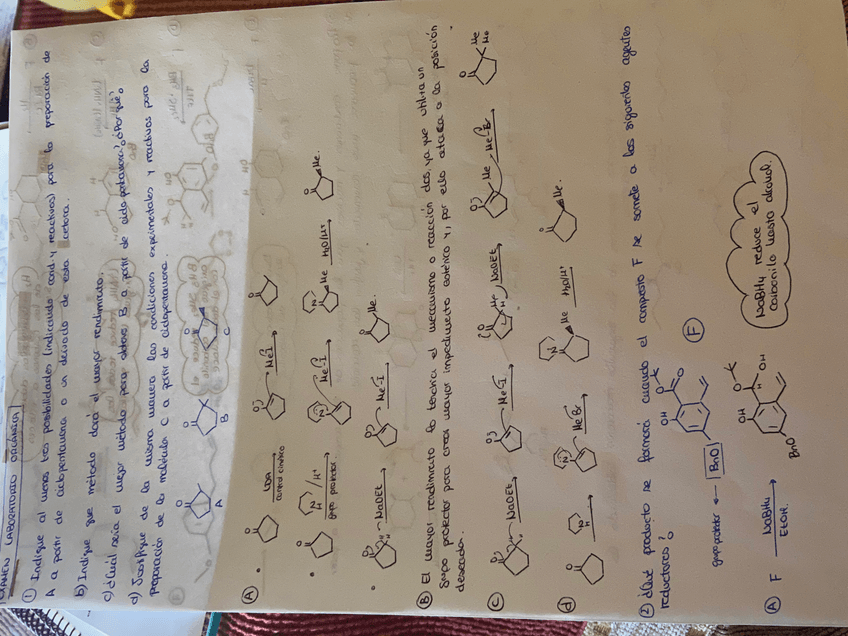 EXAMEN LABORATORIO ORGÁNICA
① Indique al menos tres posibilidades (indicando cond y reactivos) para la preparación de
A a partir de ciclopentanona o un derivado de esta cetona.
b) Indique que método dará el mayor rendimiento.
c) ¿Cuál sería el mejor método para obtener B a partir de ciclopentanona? ¿Por qué?
d) Justifique de la misma manera las condiciones experimentales y reactivos para la
preparación de la molécula C a partir de ciclopentanona.
A
B
C
Ⓐ
LDA
control cinético
MeI
/H+
grupo protector
MeI
Me
H2O/H+
Me.
NaOEt
Me-I
Me.
Ⓑ El mayor rendimiento lo tendría el mecanismo o reacción dos, ya que utiliza un
grupo protector para crear mayor impedimento estérico y, por ello ataca a la posición
deseada.
Ⓒ
NaOEt
Me-I
Me
NaOEt
Me
MeBr
Me
Me
ⓓ
MeBr
Me
H2O/H+
Me.
② ¿Qué producto se formará cuando el compuesto F se somete a los siguientes agentes
reductores?
grupo protector ← BnO
OH
O
Ⓕ
Ⓐ F
NaBH4
EtOH.
BnO
OH
O
H
OH
NaBH4 reduce el
carbonilo hasta alcohol.